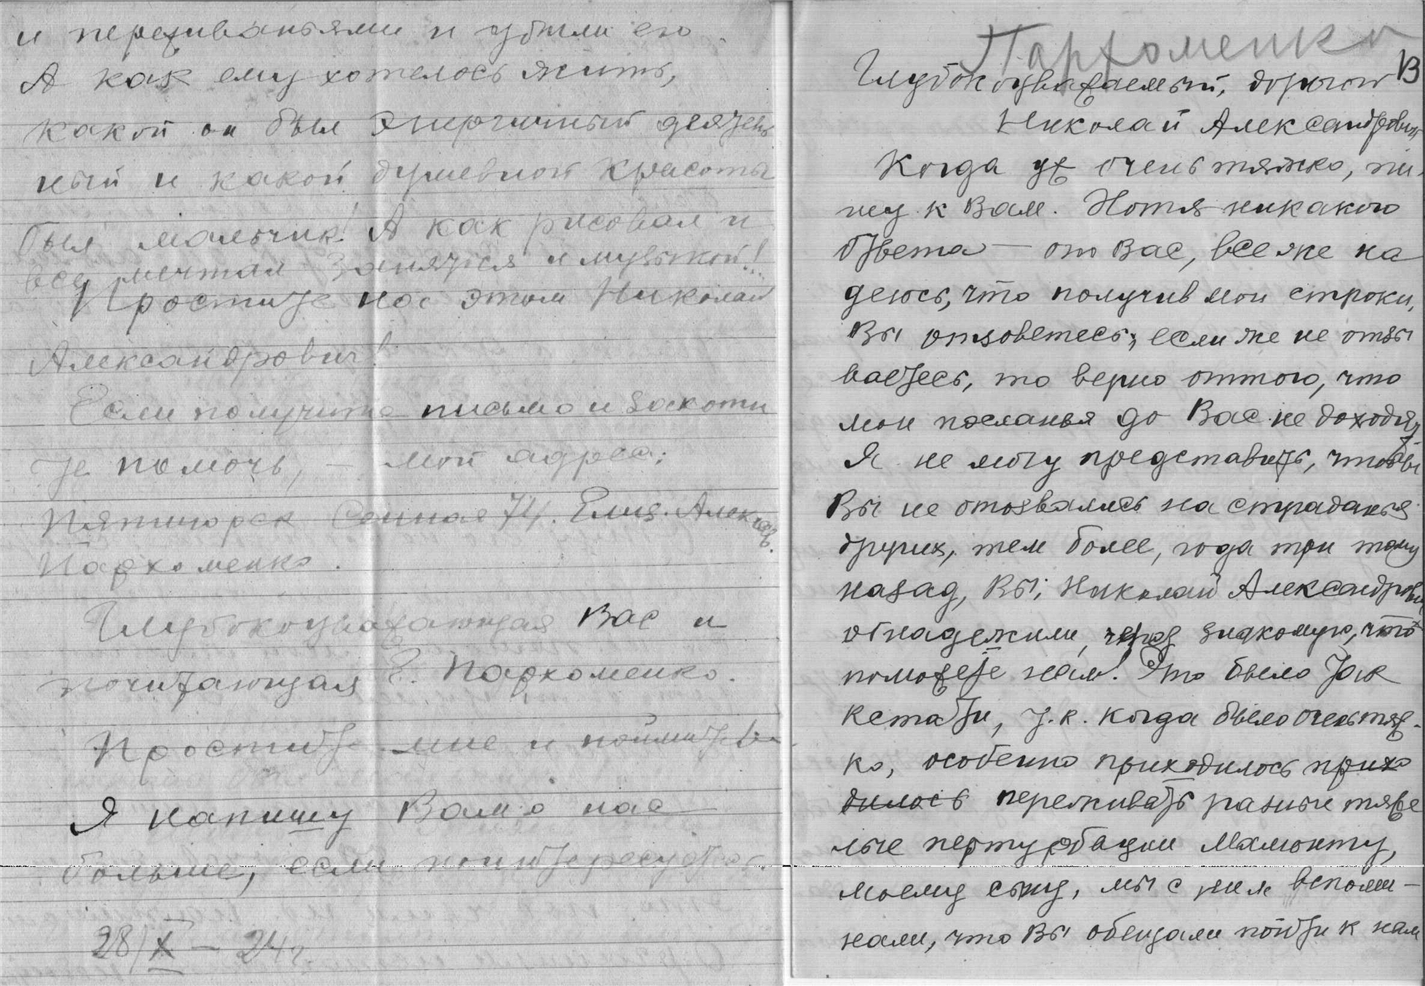 и переживаньями и убили его.
А как ему хотелось жить,
какой он был энергичный деятель
ный и какой душевной красоты
был мальчик! А как рисовал и
все мечтал заняться и музыкой!...
Простите нас этом Николай
Александрович!
Если получите письмо и захоти
те помочь, — мой адрес:
Пятигорск Сенная 74. Елиз. Алексеев.
Пархоменко.
Глубокоуважающая Вас и
почитающая Е. Пархоменко.
Простите мне и поймите
Я напишу Вам о нас
больше, если поинтересуетесь.
28/X – 24 г.
Пархоменко
13
Глубокоуважаемый, дорогой
Николай Александрович
Когда уж очень тяжко, пи-
шу к Вам. Хотя никакого
ответа — от Вас, все же на
деюсь, что получив мои строки,
Вы отзоветесь; если же не отзы
ваетесь, то верно оттого, что
мои посланья до Вас не доходят
Я не могу представить, чтобы
Вы не отозвались на страданья
других, тем более, года три тому
назад, Вы, Николай Александрович
обнадежили, через знакомую, что
поможете нам! Это было так
кстати, т.к. когда было очень тяж-
ко, особенно приходилось прихо
дилось переживать разные тяже
лые пертурбации Мамонту,
моему сыну, мы с ним вспоми-
нали, что Вы обещали пойти к нам